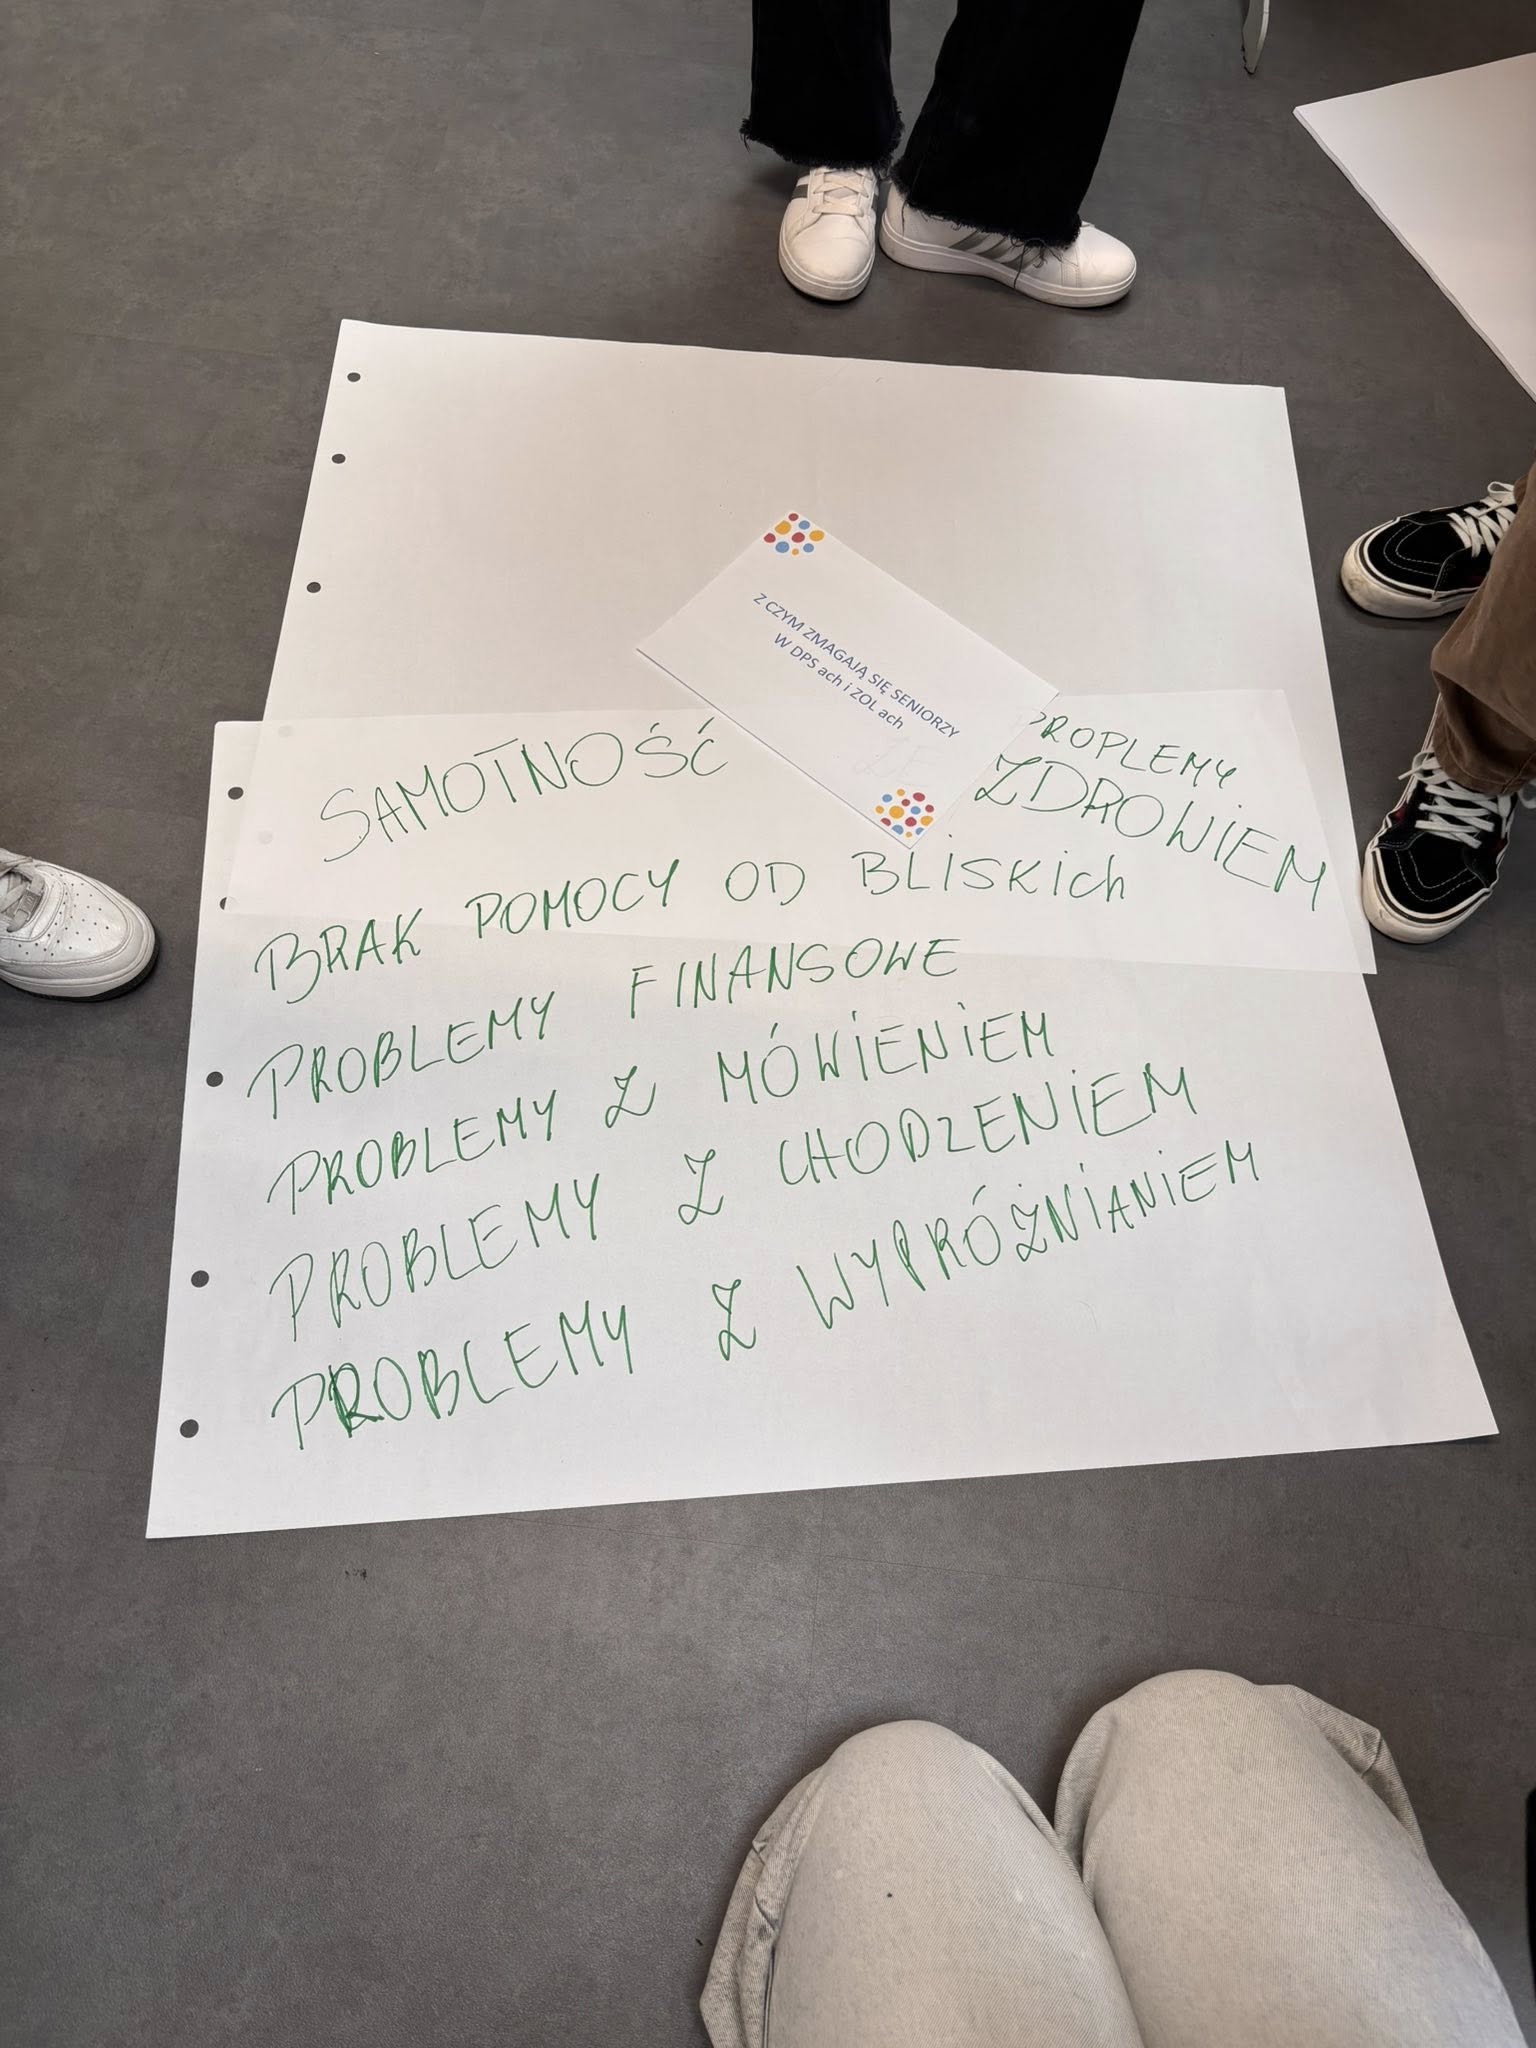 Z CZYM ZMAGAJĄ SIĘ SENIORZY
W DPS ach i ZOL ach
SAMOTNOŚĆ
PROPLEMY
ZE ZDROWIEM
BRAK POMOCY OD BLISKICh
PROBLEMY FINANSOWE
PROBLEMY Z MÓWIENIEM
PROBLEMY Z CHODZENIEM
PROBLEMY Z WYPRÓŻNIANIEM